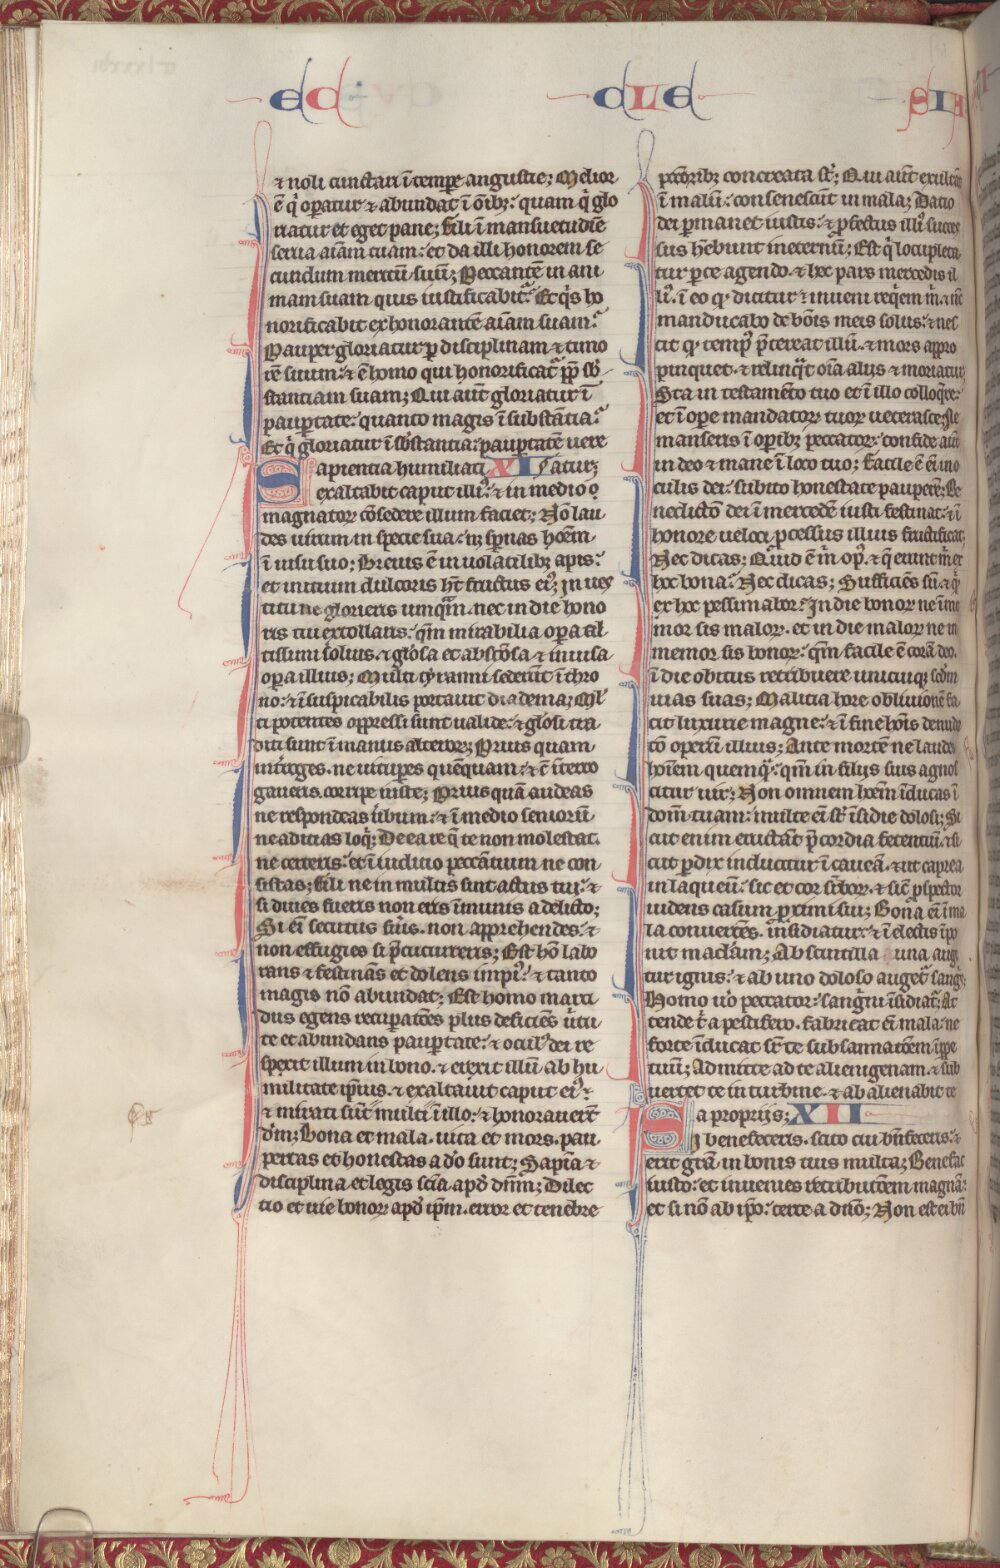 EC CLE SIE
⁊ noli cunctari ĩ tempore angustie; Melior
ẽ q̇ oꝑatur ⁊ abundat ĩ õibꝫ: quam q̇ glo
riatur et eget pane; Fili ĩ mansuetudĩe
serua aĩam tuam: et da illi honorem se
cundum meritũ suũ; Peccantẽ in ani
mam suam quis iustificabit? Et q̇s ho
norificabit exhonorantẽ aĩam suam?
Pauper gloriatur ꝑ disciplinam ⁊ timo
rẽ suum: ⁊ ẽ homo qui honorificat᷑ ꝓp̃ sb̃
stantiam suam; Qui aut̃ gloriatur ĩ
pauꝑtate: quanto magis ĩ substãtia?
Et q̇ gloriatur ĩ sb̃stantia: pauꝑtatẽ uere
Sapientia humiliati XI atur;
exaltabit caput illiꝰ: ⁊ in medio
magnatoꝝ cõsedere illum faciet; Nõ lau
des uirum in specie sua: nꝫ sꝑnas hoĩem
ĩ uisu suo; Breuis ẽ in uolatilibꝫ apis:
et initium dulcoris hꝫ fructus eiꝰ; In ues
titu ne glorieris umquã. nec in die hono
ris tui extollaris: qm̃ mirabilia oꝑa al
tissimi soliꝰ. ⁊ gl̃osa et abscõsa ⁊ inuisa
oꝑa illius; Multi tyranni sederũt ĩ thro
no: ⁊ ĩsuspicabilis portauit diadema; Ml̃
ti potentes oppressi sunt ualide: ⁊ gl̃osi tra
diti sunt ĩ manus alteroꝝ; Prius quam
inťroges. ne uituꝑes quẽquam: ⁊ cũ ĩterro
gaueris. corripe iuste; Prius quã audeas
ne respondeas ũbum: ⁊ ĩ medio senioꝝ
ne adicias loqi; De ea re q̃ te non molestat.
ne certeris: et ĩ iudicio peccãtium ne con
sistas; Fili ne in multis sint actus tui: ⁊
si diues fueris non eris ĩmunis a delicto;
Si eĩ secutus fũis. non apprehendes: ⁊
non effugies si p̃cucurreris; Est hõ labo
rans ⁊ festinãs et dolens impiꝰ: ⁊ tanto
magis nõ abundat; Est homo marci
dus egens recuꝑatõe: plus deficiẽs ũtu
te et abundans pauꝑtate: ⁊ ocul̃ dei re
spexit illum in bono. ⁊ erexit illũ ab hu
militate ip̃ius. ⁊ exaltauit caput eiꝰ:
⁊ mirati sũt multi ĩ illo: ⁊ honorauerũt
dm̃; Bona et mala. uita et mors. pau
pertas et honestas a dõ sunt; Sapĩa ⁊
disciplina et legis scĩa apď dñm; Dilec
tio et uie bonoꝝ apď ip̃m. error et tenebre
pctõribꝫ concreata st̃; Qui aut̃ exultãt
ĩ malis: consenescũt in mala; Datio
dei permanet iustis: ⁊ ꝓfectus illiꝰ succes
sus hẽbunt ineternũ; Est q̇ locupleta
tur parce agendo. ⁊ hec pars mercedis il
liꝰ: ĩ eo qď dicitur: inueni reqĩem m̃ ⁊ nũc
manducabo de bõis meis solus: ⁊ nes
cit qď tempꝰ p̃tereat illũ. ⁊ mors appro
pinquet. ⁊ relinq̃t oĩa aliis ⁊ moriatur
Sta in testamẽto tuo et ĩ illo colloq̃re:
et ĩ oꝑe mandatoꝝ tuoꝝ ueterasce; Ne
manseris ĩ oꝑibꝫ peccatoꝝ: confide aũt
in deo ⁊ mane ĩ loco tuo; facile ẽ eĩ ĩno
culis dei: subito honestare pauꝑẽ; Be
nedictõ dei ĩ mercedẽ iusti festinat: ⁊ ĩ
honore ueloci ꝓcessus illius fructificat
Nec dicas; Quid ẽ m̃ opꝰ. ⁊ q̃ erunt m̃ ex
hoc bona? Nec dicas; Sufficiẽs sũ: ⁊ q̇
ex hoc pessimabor? In die bonoꝝ ne ĩme
mor sis maloꝝ. et in die maloꝝ ne im
memor sis bonoꝝ: qm̃ facile ẽ corã deo.
ĩ die obitus retribuere unicuiqꝫ scďm
uias suas; Malitia hore obliuionẽ fa
cit luxurie magne: ⁊ ĩ fine hoĩs denuda
tõ operũ illius; Ante mortẽ ne laudes
hoĩem quemq̃: qm̃ in filiis suis agnos
citur uir; Non omnem hoĩem ĩducas ĩ
domũ tuam: multe eĩ st̃ ĩsidie dolosi; Si
cut enim eructãt p̃cordia fetentiũ: ⁊ si
cut ꝑdix inducitur ĩ caueã. ⁊ ut caprea
in laqueũ: sic et cor suꝑboꝝ. ⁊ sic̃ ꝓspector
uidens casum ꝓximi sui; Bona eĩ ĩ ma
la conuertẽs. insidiatur: ⁊ ĩ electis ĩpo
net maclam; Ab scintilla una auge
tur ignis: ⁊ ab uno doloso auget᷑ sangͥs
Homo ũo peccator: sangͥui ĩsidiat᷑; At
tende t̃ a pestifero. fabricat eĩ mala: ne
forte ĩducat suꝑ te subsannatõem ĩ ꝑpe
tuũ; Admitte ad te alienigenam. ⁊ sub
uertet te in turbine. ⁊ abalienabit te
a propriis; XII
Si benefeceris. scito cui bñfeceris: ⁊
erit gr̃a in bonis tuis multa; Benefac
iusto: et inuenies retributõem magnã:
et si nõ ab ip̃o: certe a dño; Non est ei bñ